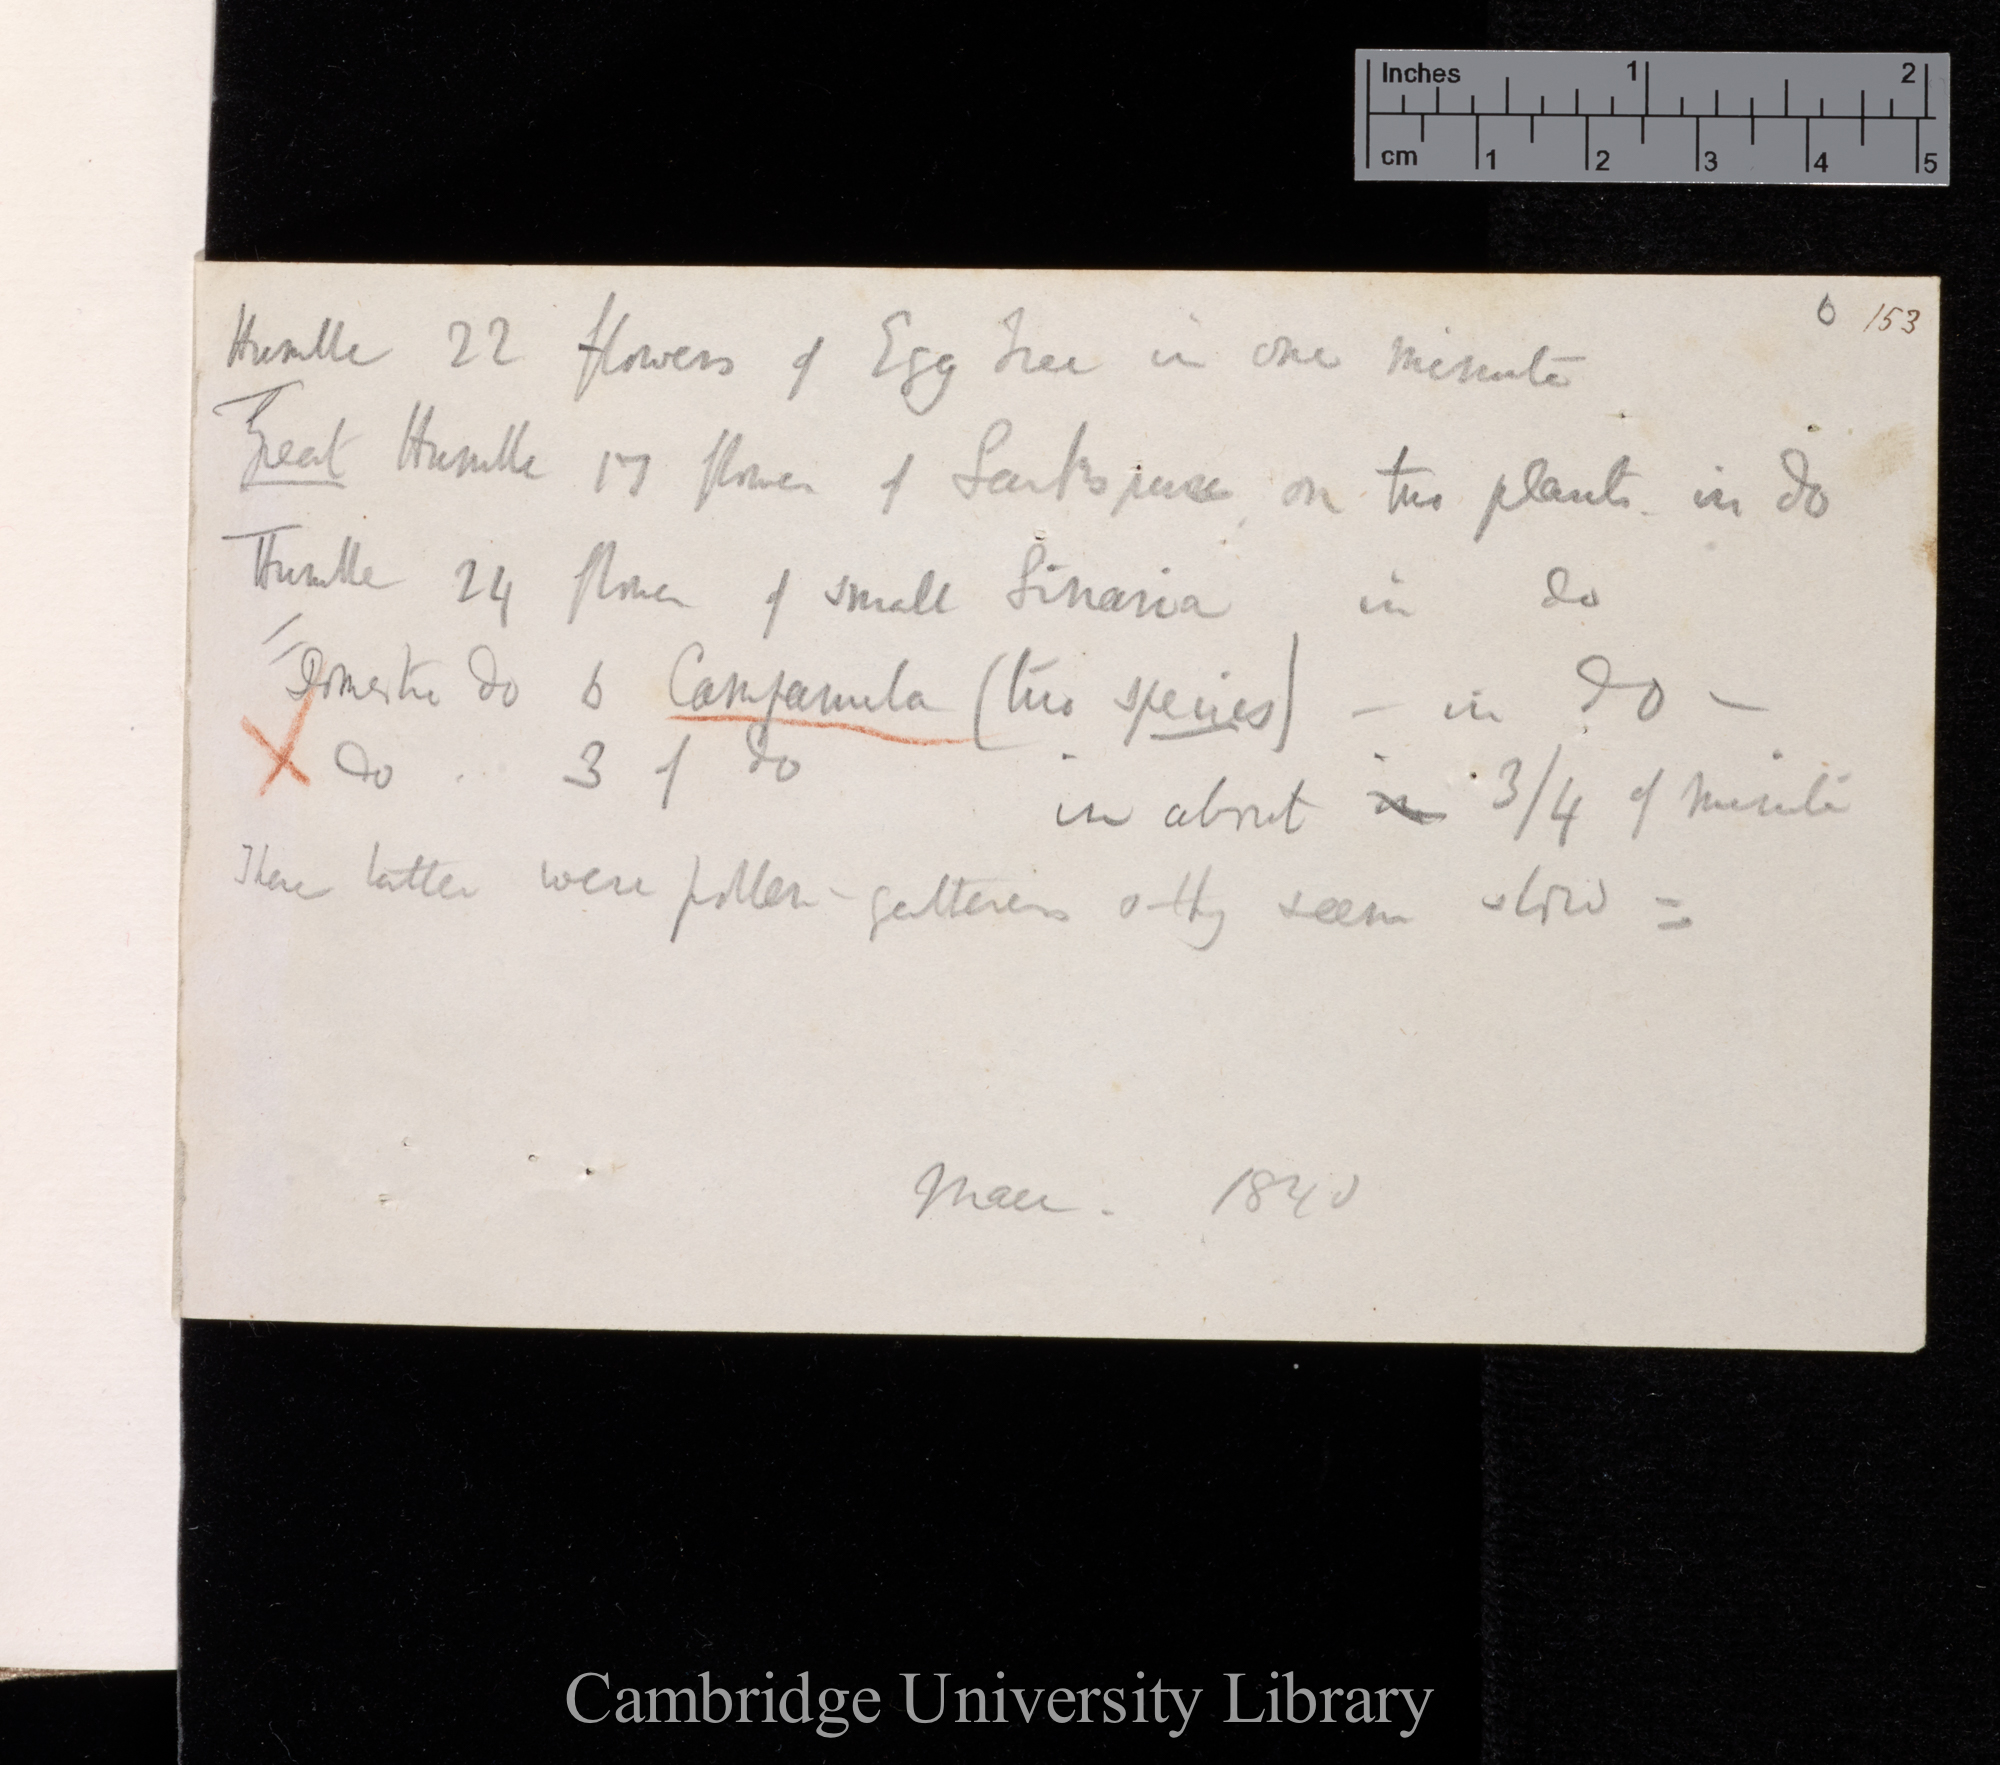 Inches 1 2
cm 1 2 3 4 5
6 153
Humble 22 flowers of Egg Tree in one minute
Great Humble 17 flower of Larkspur, on two plants. in do
Humble 24 flower of small Linaria in do
Domestic do 6 Campanula (two species) — in do —
X do 3 of do
in about in 3/4 of minute
These latter were pollen-gatherers & they seem slow =
Maer. 1840
Cambridge University Library